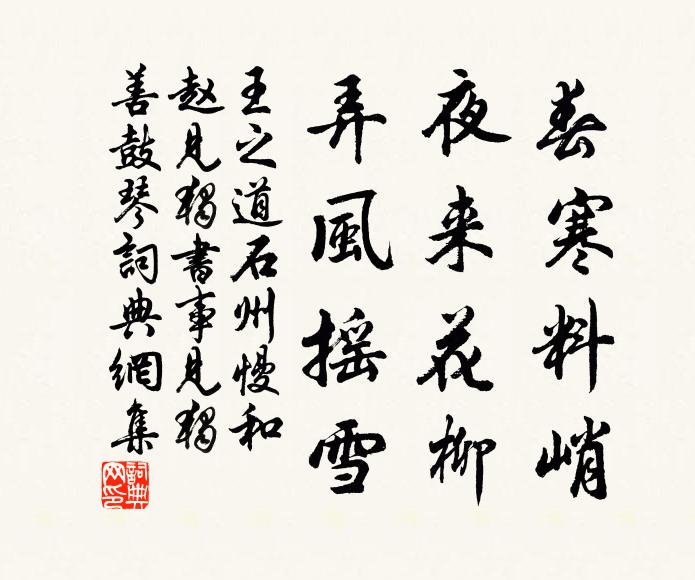 春寒料峭
夜来花柳
弄風摇雪
王之道石州慢和
赵見獨書事見獨
善鼓琴詞典網集
詞典网印